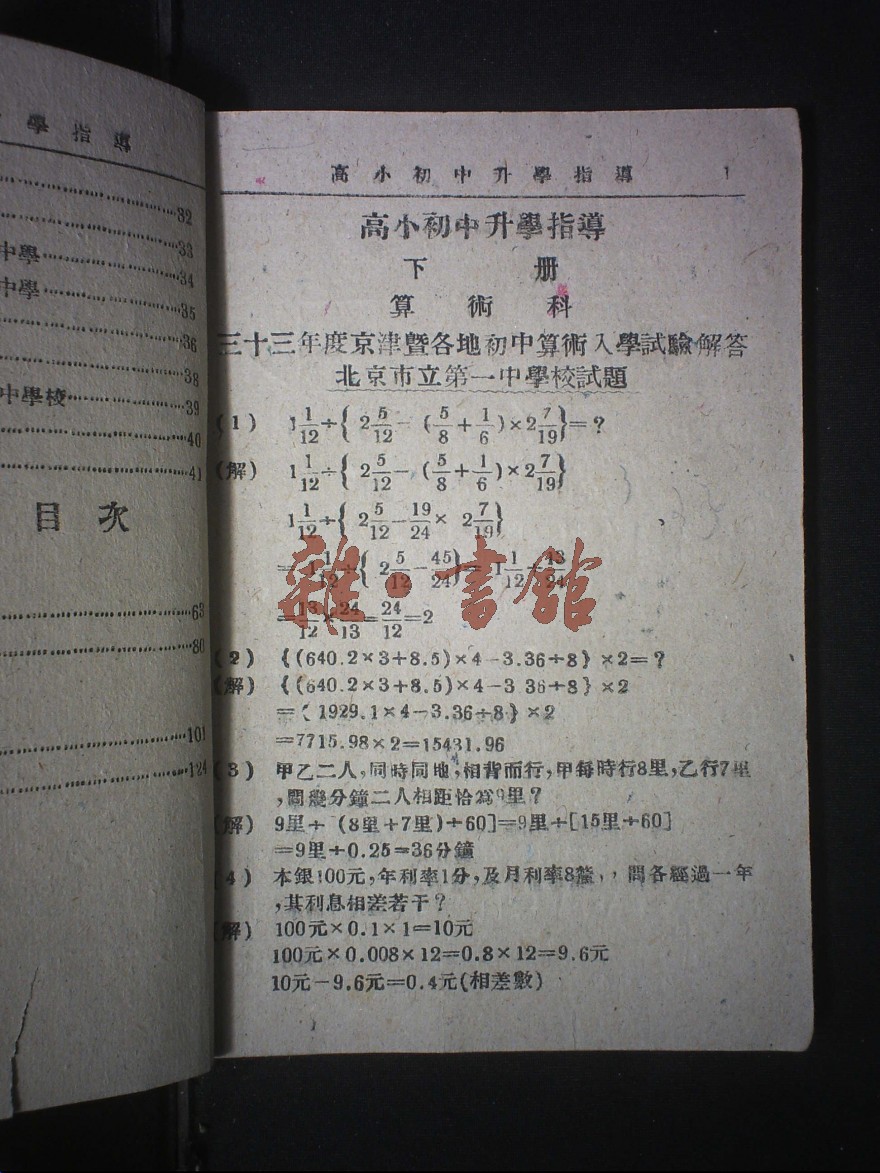 學指導
32
33
中學 34
中學 35
36
38
中學校 39
40
41
目次
63
80
101
124
高小初中升學指導 1
高小初中升學指導
下册
算術科
三十三年度京津暨各地初中算術入學試驗解答
北京市立第一中學校試題
(1) 1 1/12÷{2 5/12-(5/8+1/6)×2 7/19}=?
(解) 1 1/12÷{2 5/12-(5/8+1/6)×2 7/19}
1 1/12÷{2 5/12-19/24×2 7/19}
=1 1/12÷{2 5/12-45/24}=1 1/12÷13/24
=13/12×24/13=24/12=2
(2) {(640.2×3+8.5)×4-3.36÷8}×2=?
(解) {(640.2×3+8.5)×4-3 36÷8}×2
={1929.1×4-3.36÷8}×2
=7715.98×2=15431.96
(3) 甲乙二人,同時同地,相背而行,甲每時行8里,乙行7里
,問幾分鐘二人相距恰爲9里?
(解) 9里÷(8里+7里)÷60]=9里÷[15里÷60]
=9里÷0.25=36分鐘
(4) 本銀100元,年利率1分,及月利率8釐,,問各經過一年
,其利息相差若干?
(解) 100元×0.1×1=10元
100元×0.008×12=0.8×12=9.6元
10元-9.6元=0.4元(相差數)
雜·書館